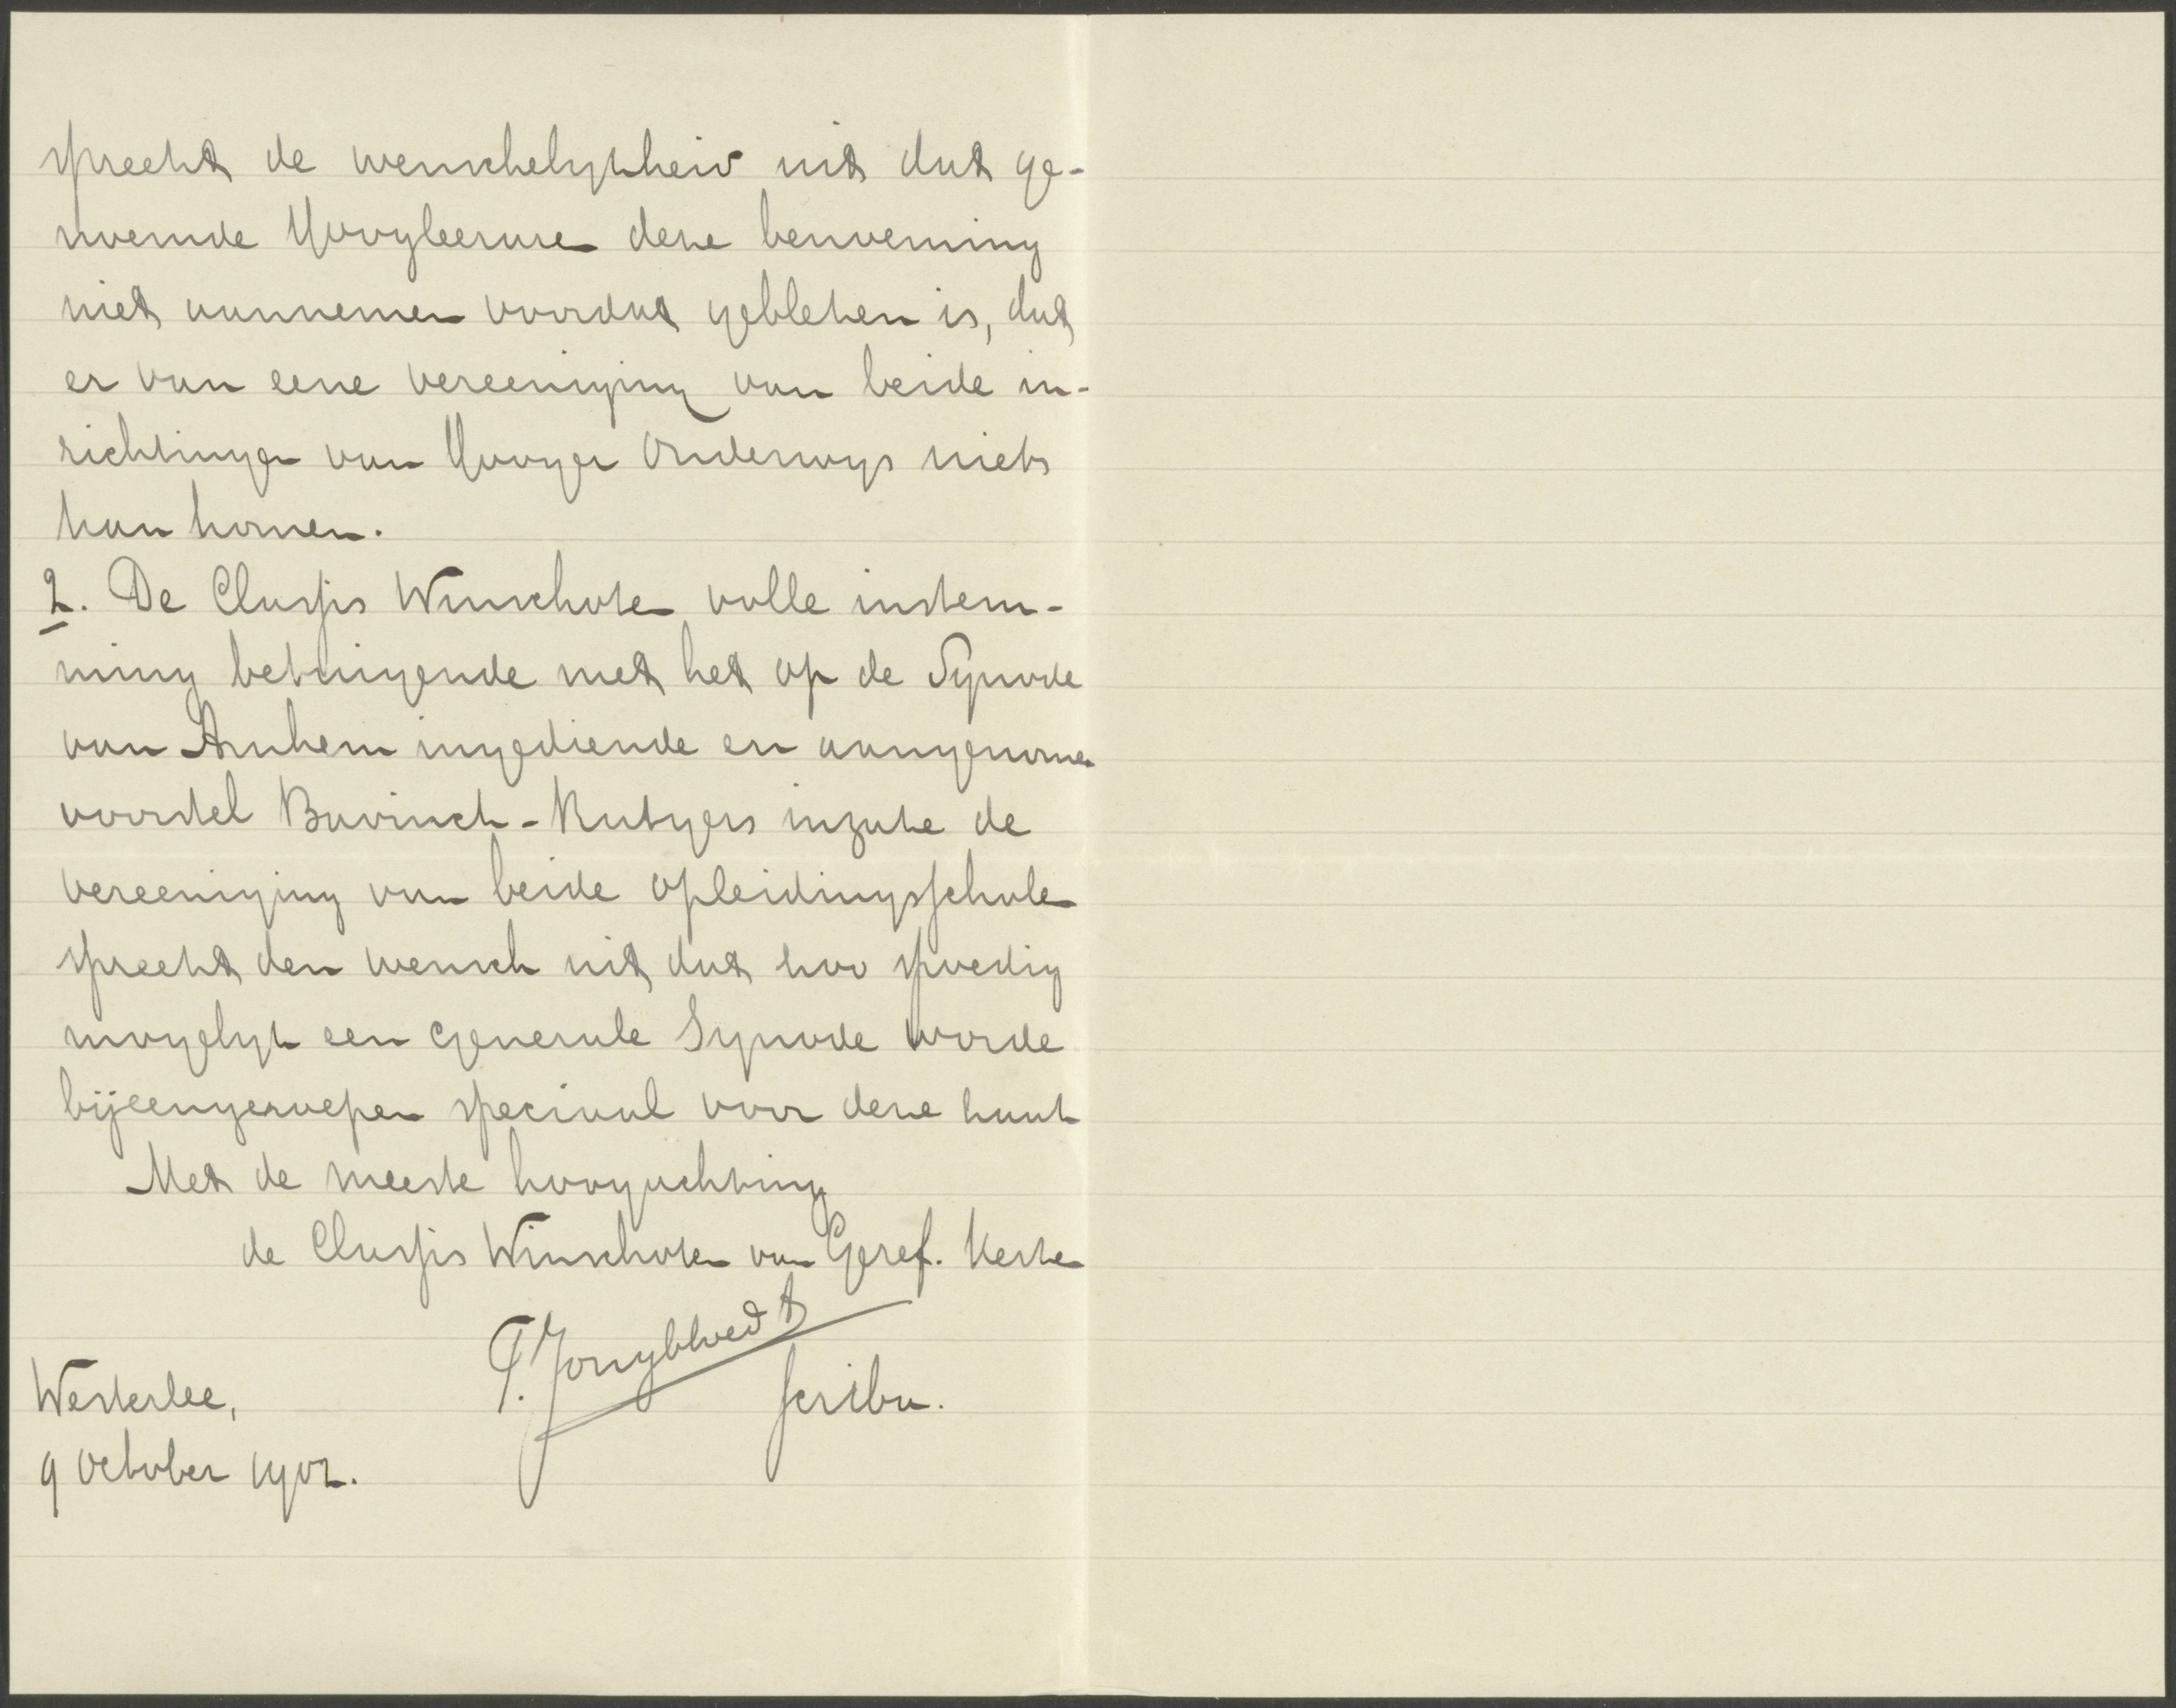 spreekt de wenschelykheid uit dat ge-
noemde Hoogleeraren deze benoeming
niet aannemen voordat gebleken is, dat
er van eene vereeniging van beide in-
richtingen van Hooger Onderwys niets
kan komen.
2. De Classis Winschoten volle instem-
ming betuigende met het op de Synode
van Arnhem ingediende en aangenomen
voorstel Bavinck-Rutgers inzake de
vereeniging van beide opleidingsscholen
spreekt den wensch uit dat zoo spoedig
mogelyk een Generale Synode worde
bijeengeroepen speciaal voor deze zaak
Met de meeste hoogachting
de Classis Winschoten van Geref. Kerken
T. Jongbloed t
Westerlee,
scriba.
9 October 1902.